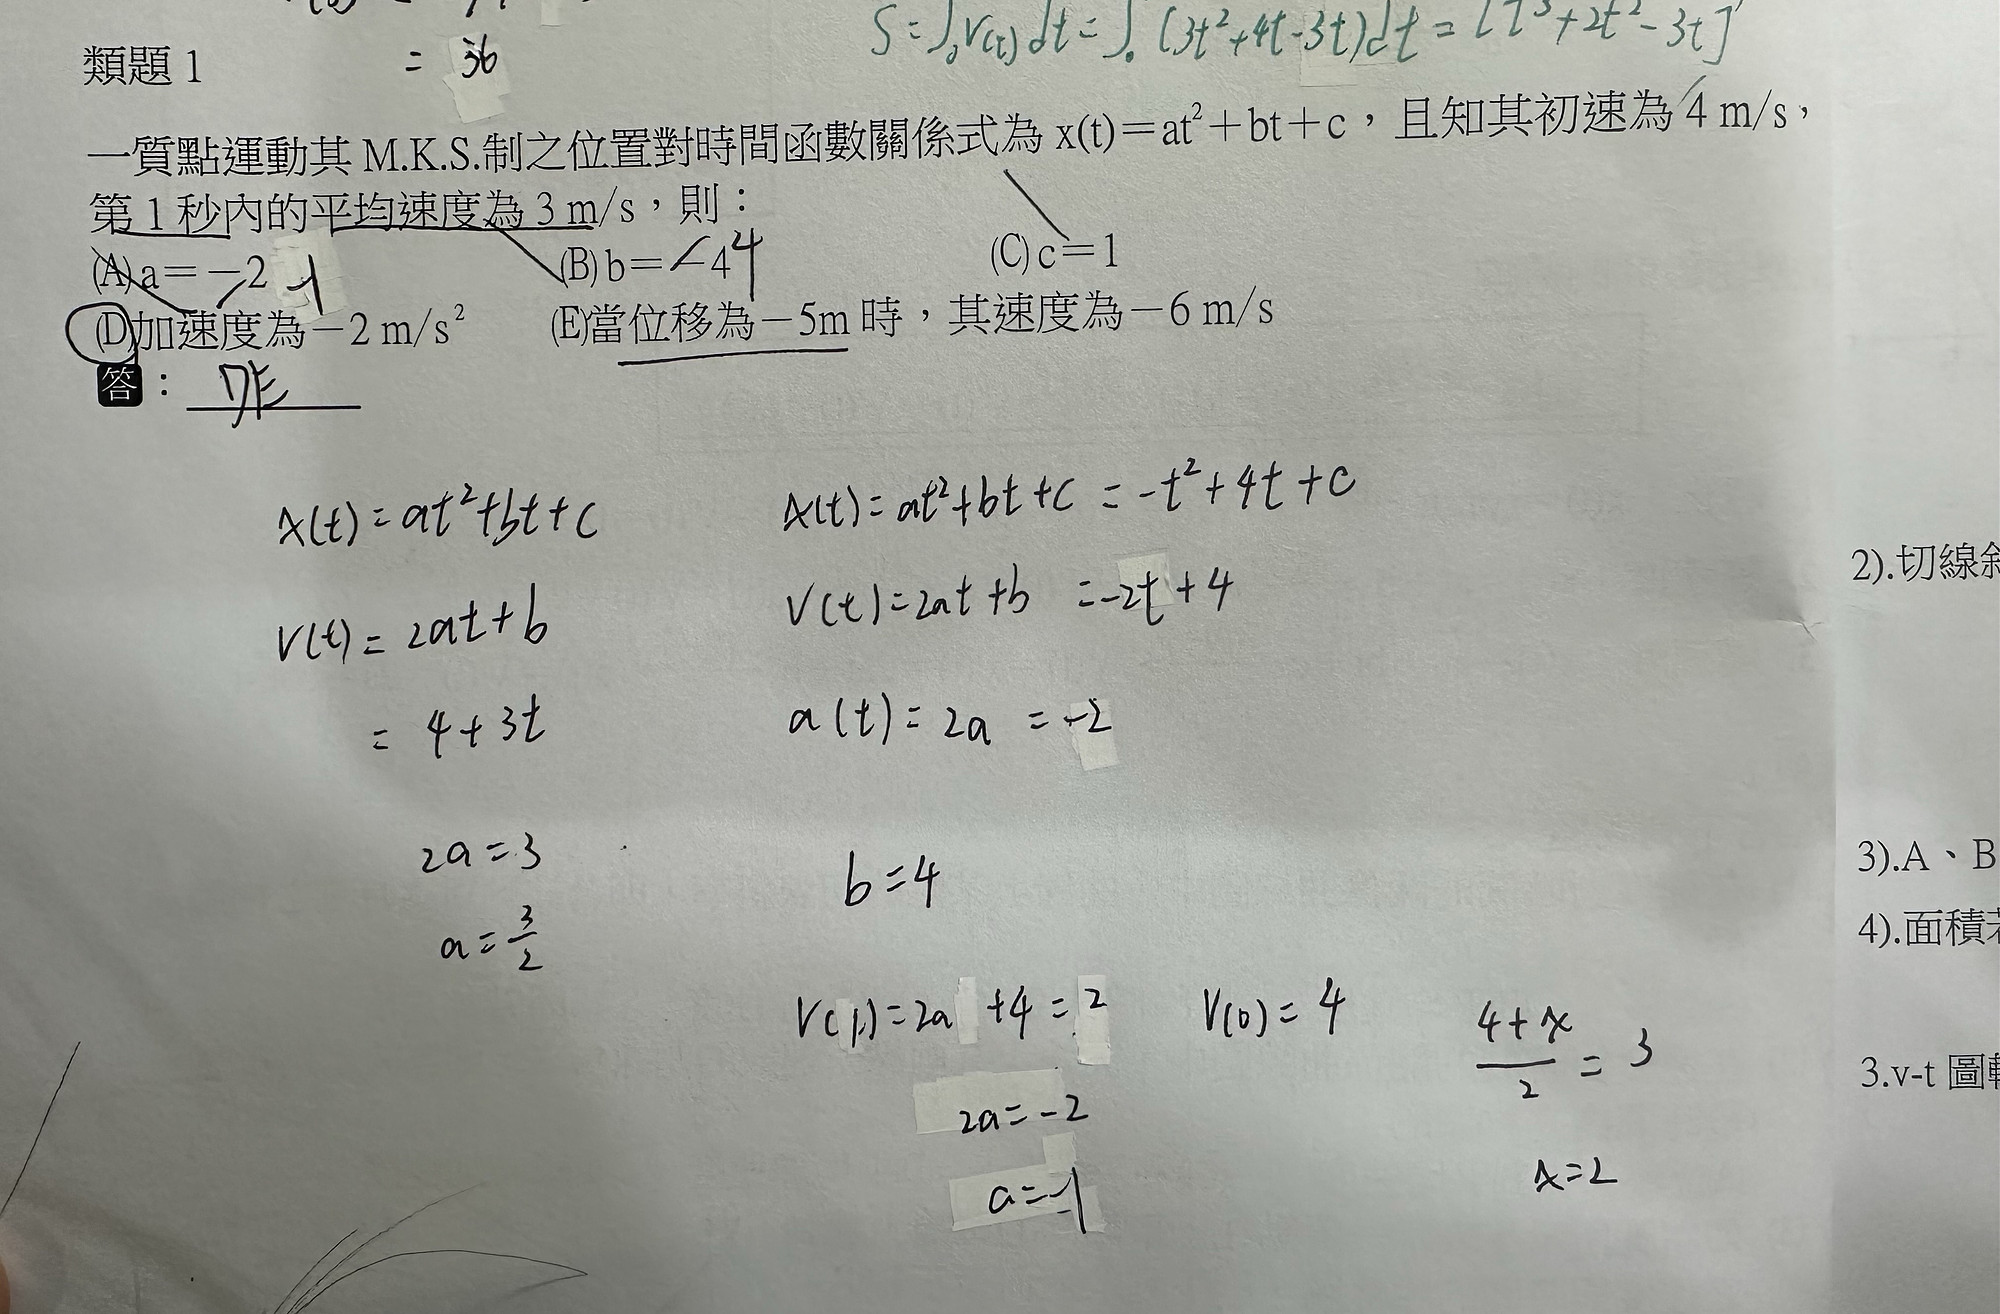 = 36
S=∫₀V(t)dt=∫₀(3t²+4t-3t)dt=[t³+2t²-3t]
類題 1
一質點運動其 M.K.S.制之位置對時間函數關係式為 x(t)=at²+bt+c,且知其初速為 4 m/s,
第 1 秒內的平均速度為 3 m/s,則:
(A) a=-2 -1 (B) b=-4 4 (C) c=1
(D)加速度為-2 m/s² (E)當位移為-5m 時,其速度為-6 m/s
答: DE
x(t)=at²+bt+c
V(t)=2at+b
= 4+3t
2a=3
a=3/2
x(t)=at²+bt+c =-t²+4t+c
V(t)=2at+b =-2t+4
a(t)=2a =-2
b=4
V(1)=2a +4=2 V(0)=4
2a=-2
a=-1
(4+x)/2=3
x=2
2).切線
3).A、B
4).面積
3.v-t 圖